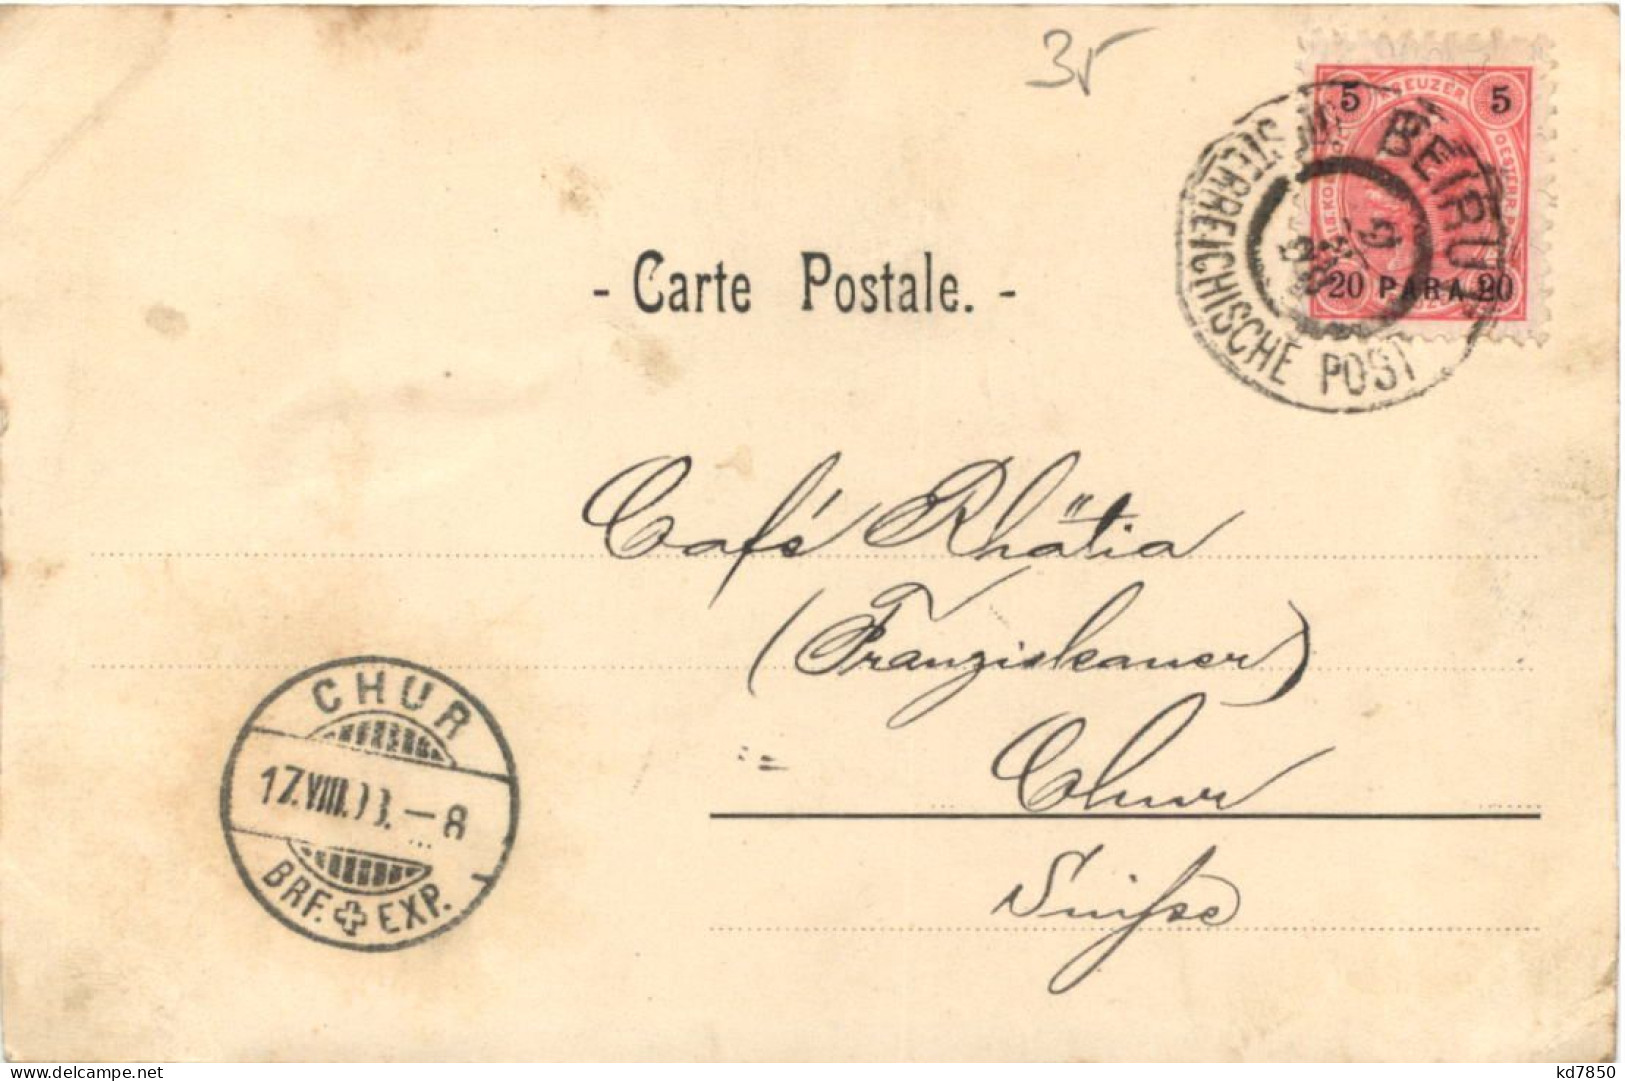 35
5 KREUZER 5
20 PARA 20
BEIRUT
ÖSTERREICHISCHE POST
- Carte Postale. -
Café Rhätia
(Franziskaner)
Chur
Suisse
CHUR
17.VIII.03. – 8
BRF. EXP.
kd7850